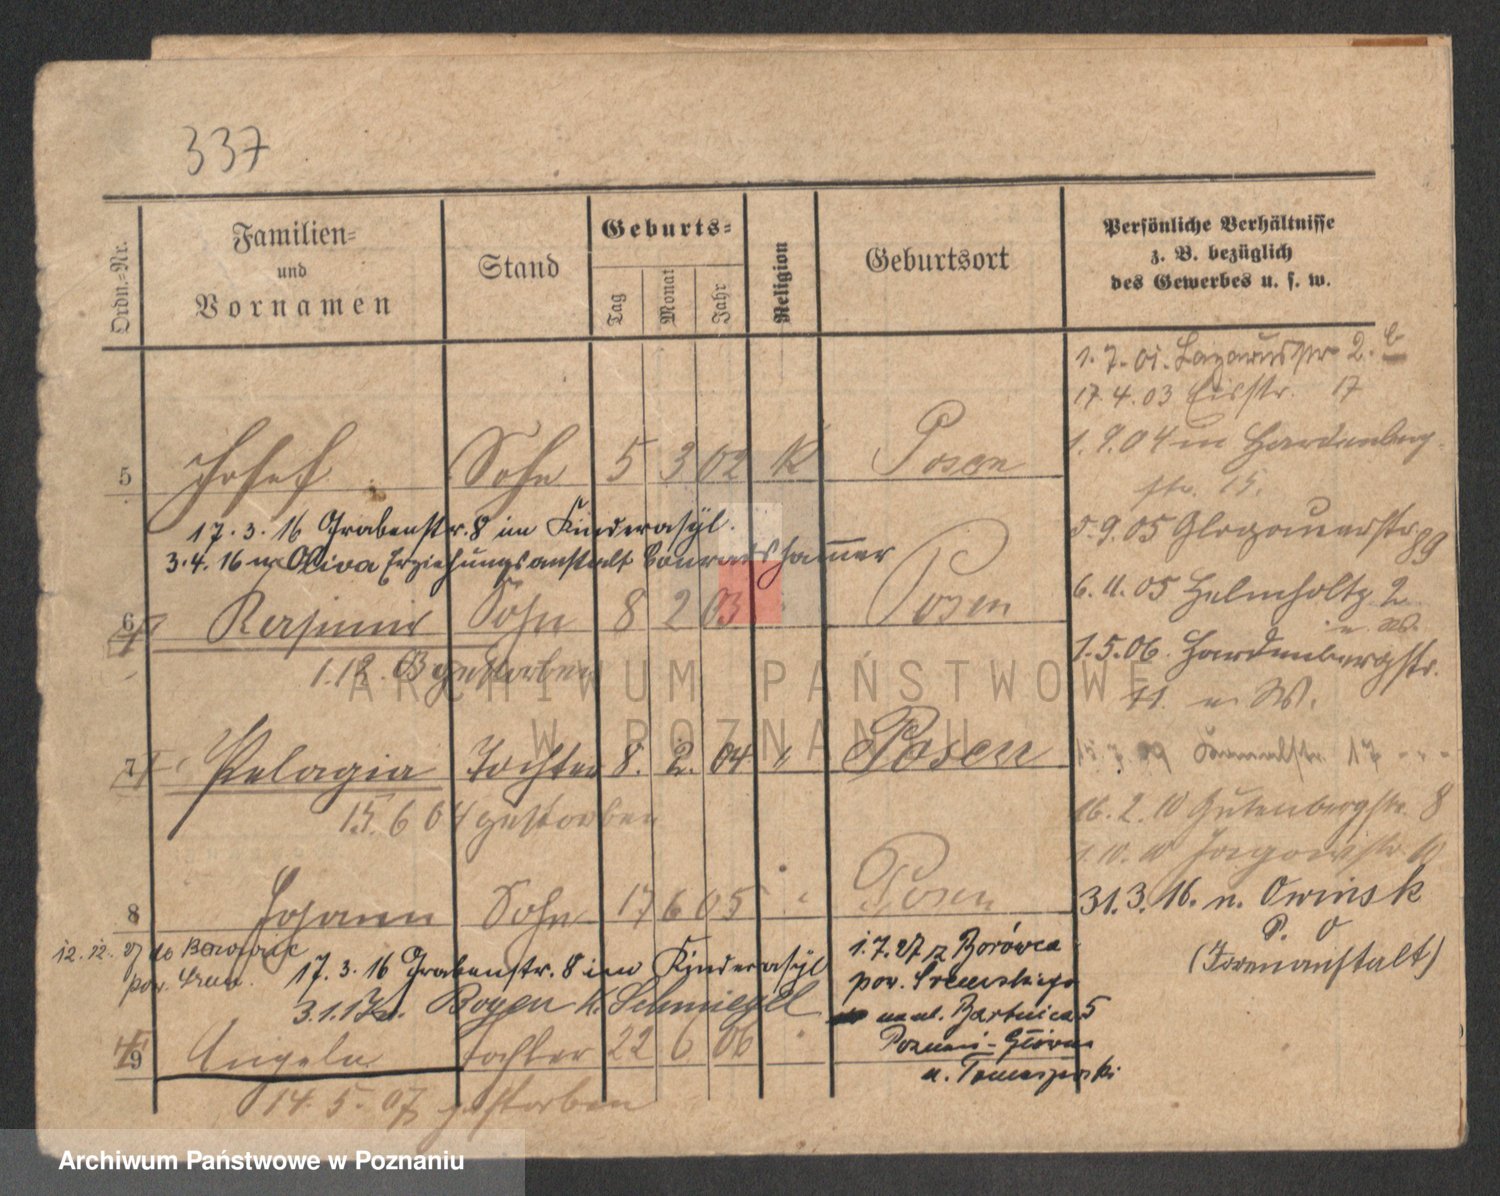 337
Ordn.-Nr.
Familien-
und
Vornamen
Stand
Geburts-
Tag
Monat
Jahr
Religion
Geburtsort
Persönliche Verhältnisse
z. B. bezüglich
des Gewerbes u. s. w.
1. 7. 01. Lazarusstr 2.
17. 4. 03 Eisstr. 17
1. 9. 04 Hardenberg-
str. 15.
5. 9. 05 Glogauerstr 89
6. 11. 05 Helmholtz 2
1. 5. 06. Hardenbergstr.
11 n. W.
09 17
16. 2. 10 Gutenbergstr. 8
1. 10. Jagowstr 10
31. 3. 16. n. Owinsk
P. O
(Irrenanstalt)
5 Josef Sohn 5 3 02 K Posen
17. 3. 16 Grabenstr. 8 im Kinderasyl.
3. 4. 16 n. Oliva Erziehungsanstalt Conradshammer
6 Kasimir Sohn 8 2 03 " Posen
1. 12. 03 gestorben
7 Pelagia Tochter 8. 2. 04 " Posen
15. 6 04 gestorben
8 Johann Sohn 17 6 05 " Posen
12. 12. 27 do Borówiec
pow. Śrem.
17. 3. 16 Grabenstr. 8 im Kinderasyl
31. 1. Boyen K. Schmiegel
1. 7. 27 z Borówca
pow. Śremskiego
na ul. Bartnicza 5
Poznań-Główna
u. Tomaszewski
9 Angela Tochter 22 6 06 "
14. 5. 07 gestorben
ARCHIWUM PAŃSTWOWE
W POZNANIU
Archiwum Państwowe w Poznaniu